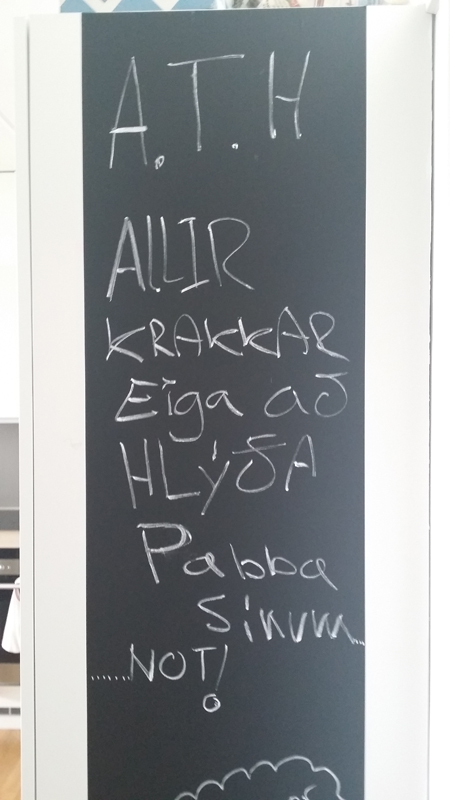 A.T.H
ALLIR
KRAKKAR
Eiga að
HLÝÐA
Pabba
Sínum...
......NOT!